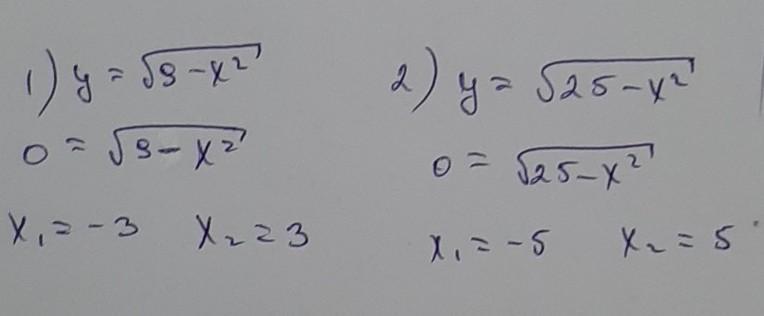 1) y = √9-x²
0 = √9-x²
x₁ = -3   x₂ = 3
2) y = √25-x²
0 = √25-x²
x₁ = -5   x₂ = 5